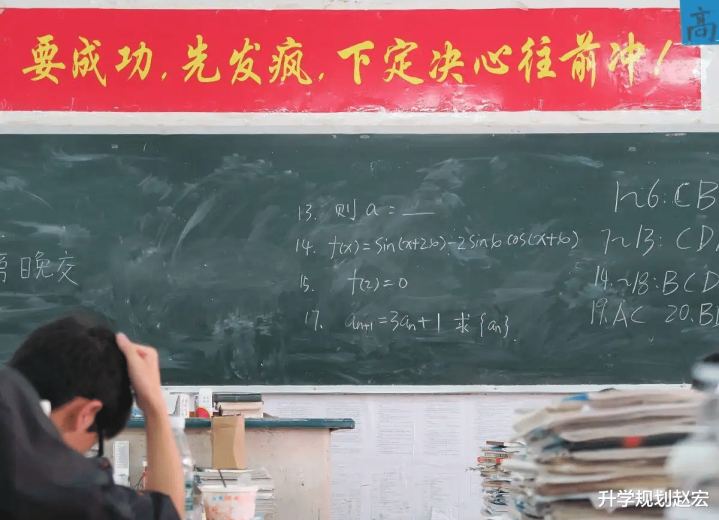 高
要成功,先发疯,下定决心往前冲!
13. 则 a = ___
14. f(x)=sin(x+2φ)-2sinφcos(x+φ)
15. f(2)=0
17. aₙ₊₁=3aₙ+1 求{aₙ}.
晚交
1~6:CB
7~13: CD
14~18: BCD
19. AC 20. B
升学规划赵宏